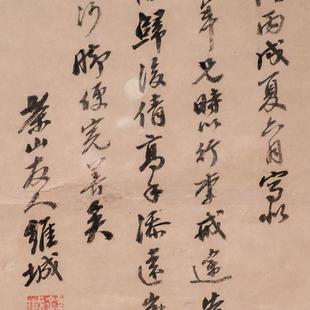 丙戌夏六月寫於
年兄時以行李戒途
歸後倩高手添遠
沙腳便完善矣
茶山友人錐城